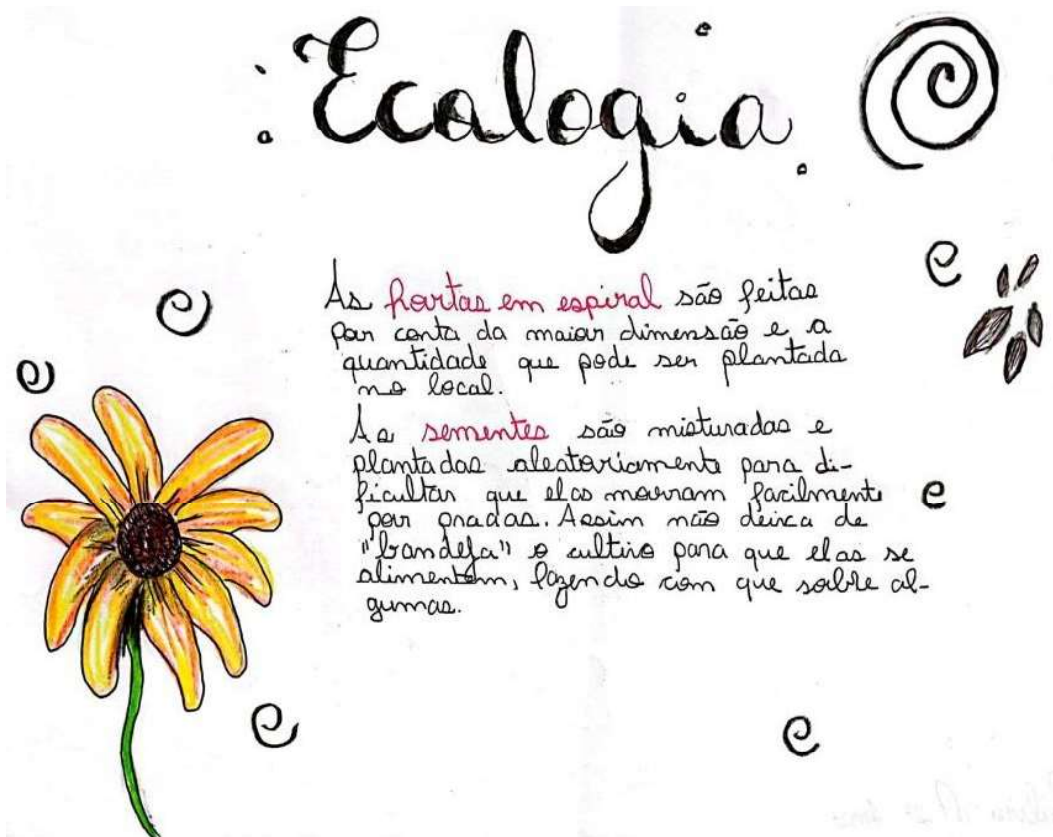 Ecologia
As hortas em espiral são feitas
por conta da maior dimensão e a
quantidade que pode ser plantada
no local.
As sementes são misturadas e
plantadas aleatoriamente para di-
ficultar que elas morram facilmente
por pradas. Assim não deixa de
"bandeja" o cultivo para que elas se
alimentem, fazendo com que sobre al-
gumas.